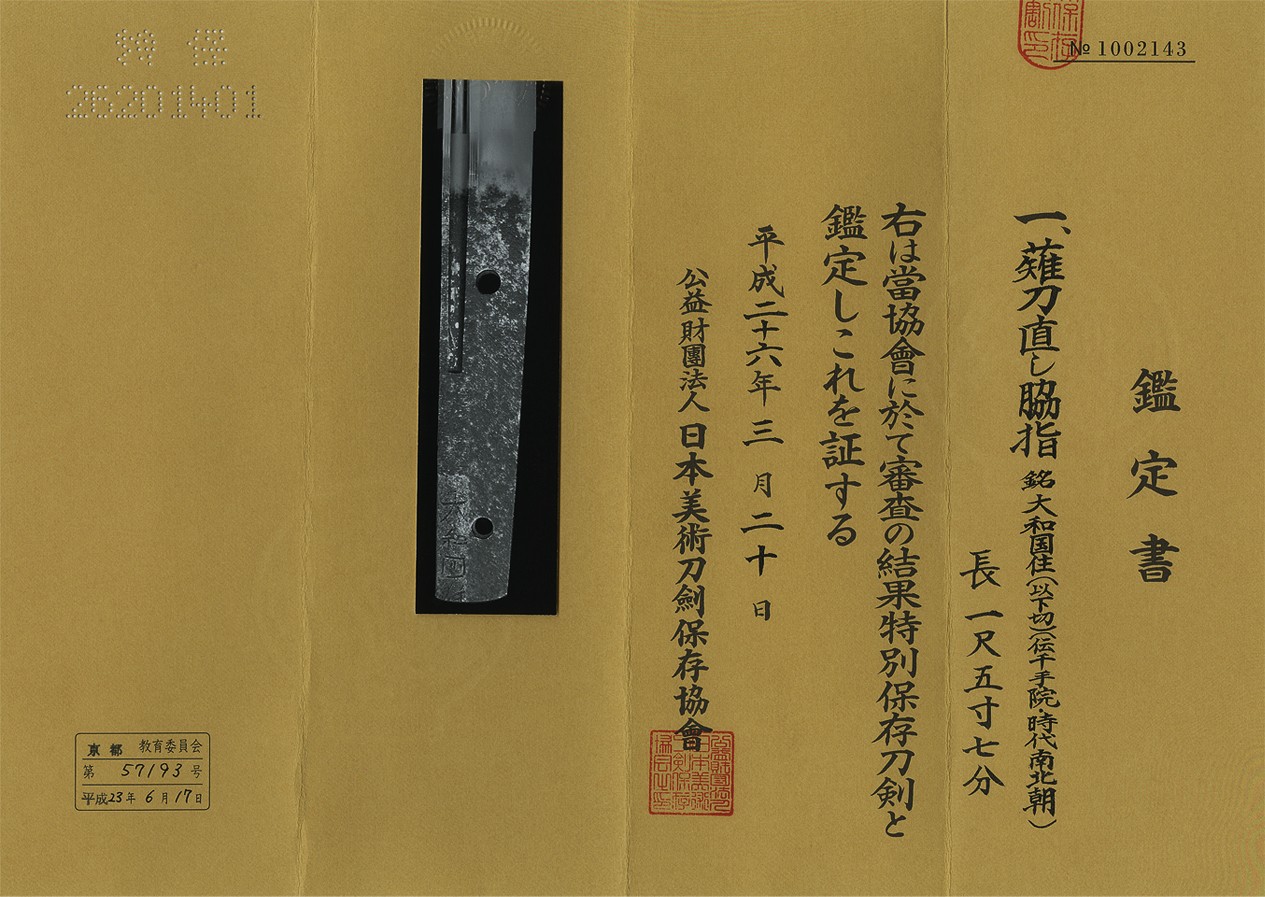 № 1002143
鑑定書
一、薙刀直し脇指 銘 大和国住(以下切)(伝千手院・時代南北朝)
長 一尺五寸七分
右は當協會に於て審査の結果特別保存刀剣と
鑑定しこれを証する
平成二十六年三月二十日
公益財團法人日本美術刀劍保存協會
大和国
特保
26201401
京都 教育委員会
第 57193 号
平成23年6月17日